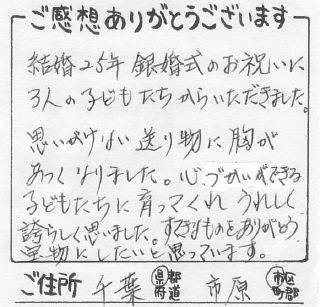 ご感想ありがとうございます
結婚25年 銀婚式のお祝いに
3人の子どもたちからいただきました。
思いがけない送り物に胸が
あつくなりました。心づかいができる
子どもたちに育ってくれ うれしく
誇らしく思いました。すてきなものをありがとう
宝物にしたいと思っています。
ご住所 千葉 都道府県 市原 市区町郡